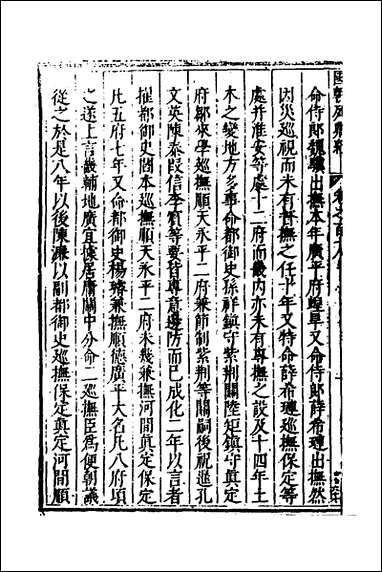 國朝列卿紀 卷之百八
命侍郎魏驥出撫本年廣平府蝗旱又命侍郎薛希璉出撫然
因災巡視而未有督撫之任十年又特命薛希璉巡撫保定等
處并淮安等處十二府而畿內亦未有專撫之設及十四年土
木之變地方多事命都御史孫祥鎮守紫荆關陸矩鎮守眞定
府鄒來學巡撫順天永平二府兼節制紫荆等關嗣後祝進孔
文英陳泰段信李賓等要皆專意邊防而已成化二年以言者
擢都御史閻本巡撫順天永平二府未幾兼撫河間眞定保定
凡五府七年又命都御史楊璿兼撫順德廣平大名凡八府頃
之遂上言畿輔地廣宜據居庸關中分命二巡撫臣爲便朝議
從之於是八年以後陳濂以副都御史巡撫保定眞定河間順